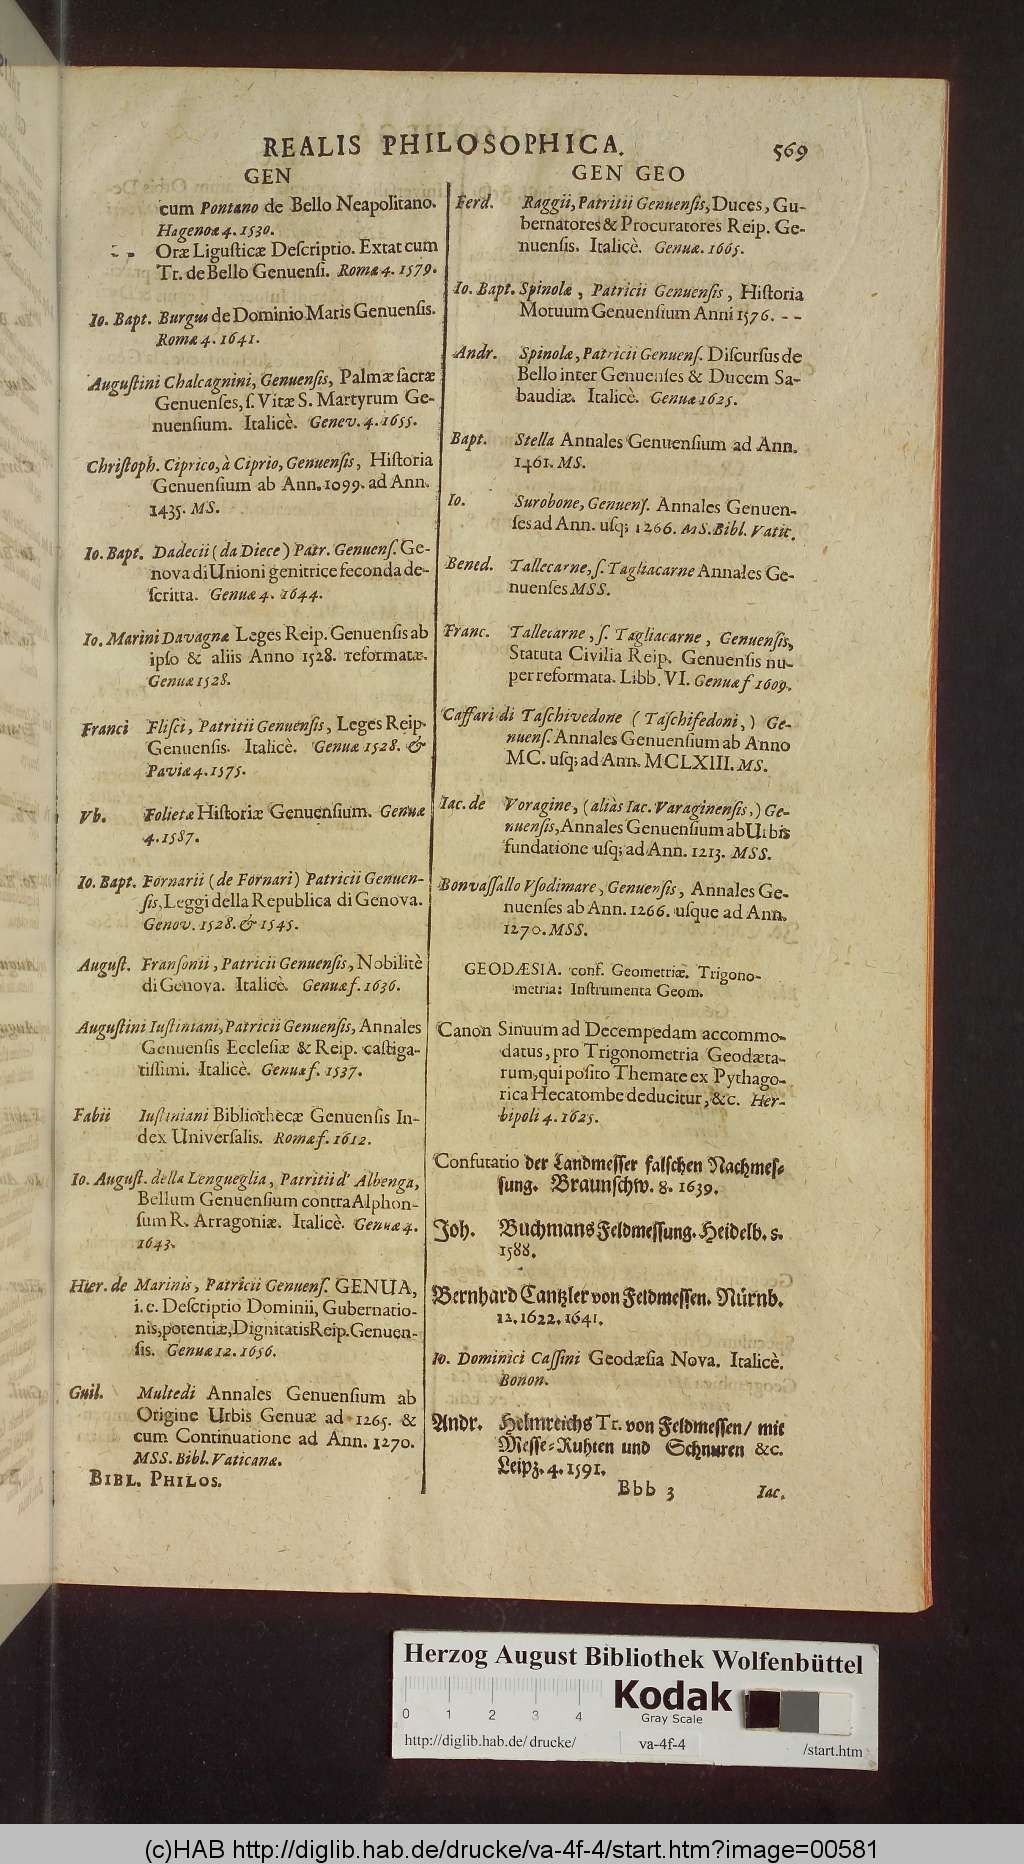 REALIS PHILOSOPHICA. 569
GEN
cum Pontano de Bello Neapolitano.
Hagenoæ 4. 1530.
- - Oræ Ligusticæ Descriptio. Extat cum
Tr. de Bello Genuensi. Romæ 4. 1579.
Io. Bapt. Burgus de Dominio Maris Genuensis.
Romæ 4. 1641.
Augustini Chalcagnini, Genuensis, Palmæ sacræ
Genuenses, s. Vitæ S. Martyrum Ge-
nuensium. Italicè. Genev. 4. 1655.
Christoph. Ciprico, à Ciprio, Genuensis, Historia
Genuensium ab Ann. 1099. ad Ann.
1435. MS.
Io. Bapt. Dadecii (da Diece) Patr. Genuens. Ge-
nova di Unioni genitrice feconda de-
scritta. Genuæ 4. 1644.
Io. Marini Davagnæ Leges Reip. Genuensis ab
ipso & aliis Anno 1528. reformatæ.
Genuæ 1528.
Franci Flisci, Patritii Genuensis, Leges Reip.
Genuensis. Italicè. Genuæ 1528. &
Paviæ 4. 1575.
Vb. Folietæ Historiæ Genuensium. Genuæ
4. 1587.
Io. Bapt. Fornarii (de Fornari) Patricii Genuen-
sis, Leggi della Republica di Genova.
Genov. 1528. & 1545.
August. Fransonii, Patricii Genuensis, Nobilitè
di Genova. Italicè. Genuæ f. 1636.
Augustini Iustiniani, Patricii Genuensis, Annales
Genuensis Ecclesiæ & Reip. castiga-
tissimi. Italicè. Genuæ f. 1537.
Fabii Iustiniani Bibliothecæ Genuensis In-
dex Universalis. Romæ f. 1612.
Io. August. della Lengueglia, Patritii d' Albenga,
Bellum Genuensium contra Alphon-
sum R. Arragoniæ. Italicè. Genuæ 4.
1643.
Hier. de Marinis, Patricii Genuens. GENUA,
i. e. Descriptio Dominii, Gubernatio-
nis, potentiæ, Dignitatis Reip. Genuen-
sis. Genuæ 12. 1656.
Guil. Multedi Annales Genuensium ab
Origine Urbis Genuæ ad 1265. &
cum Continuatione ad Ann. 1270.
MSS. Bibl. Vaticana.
BIBL. PHILOS.
GEN GEO
Ferd. Raggii, Patritii Genuensis, Duces, Gu-
bernatores & Procuratores Reip. Ge-
nuensis. Italicè. Genuæ. 1665.
Io. Bapt. Spinolæ, Patricii Genuensis, Historia
Motuum Genuensium Anni 1576. - -
Andr. Spinolæ, Patricii Genuens. Discursus de
Bello inter Genuenses & Ducem Sa-
baudiæ. Italicè. Genuæ 1625.
Bapt. Stella Annales Genuensium ad Ann.
1461. MS.
Io. Surobone, Genuens. Annales Genuen-
ses ad Ann. usq; 1266. MS. Bibl. Vatic.
Bened. Tallecarne, s. Tagliacarne Annales Ge-
nuenses MSS.
Franc. Tallecarne, s. Tagliacarne, Genuensis,
Statuta Civilia Reip. Genuensis nu-
per reformata. Libb. VI. Genuæ f 1609.
Caffari di Taschivedone (Taschifedoni,) Ge-
nuens. Annales Genuensium ab Anno
MC. usq; ad Ann. MCLXIII. MS.
Iac. de Voragine, (aliàs Iac. Varaginensis,) Ge-
nuensis, Annales Genuensium ab Urbis
fundatione usq; ad Ann. 1213. MSS.
Bonvassallo Usodimare, Genuensis, Annales Ge-
nuenses ab Ann. 1266. usque ad Ann.
1270. MSS.
GEODÆSIA. conf. Geometriæ. Trigono-
metria: Instrumenta Geom.
Canon Sinuum ad Decempedam accommo-
datus, pro Trigonometria Geodæta-
rum, qui posito Themate ex Pythago-
rica Hecatombe deducitur, &c. Her-
bipoli 4. 1625.
Confutatio der Landmesser falschen Nachmes-
sung. Braunschw. 8. 1639.
Joh. Buchmans Feldmessung. Heidelb. s.
1588.
Bernhard Cantzler von Feldmessen. Nürnb.
12. 1622. 1641.
Io. Dominici Cassini Geodæsia Nova. Italicè.
Bonon.
Andr. Helmreichs Tr. von Feldmessen / mit
Messe-Ruhten und Schnuren &c.
Leipz. 4. 1591.
Bbb 3 Iac.
Herzog August Bibliothek Wolfenbüttel
Kodak
Gray Scale
0 1 2 3 4
http://diglib.hab.de/drucke/ va-4f-4 /start.htm
(c)HAB http://diglib.hab.de/drucke/va-4f-4/start.htm?image=00581